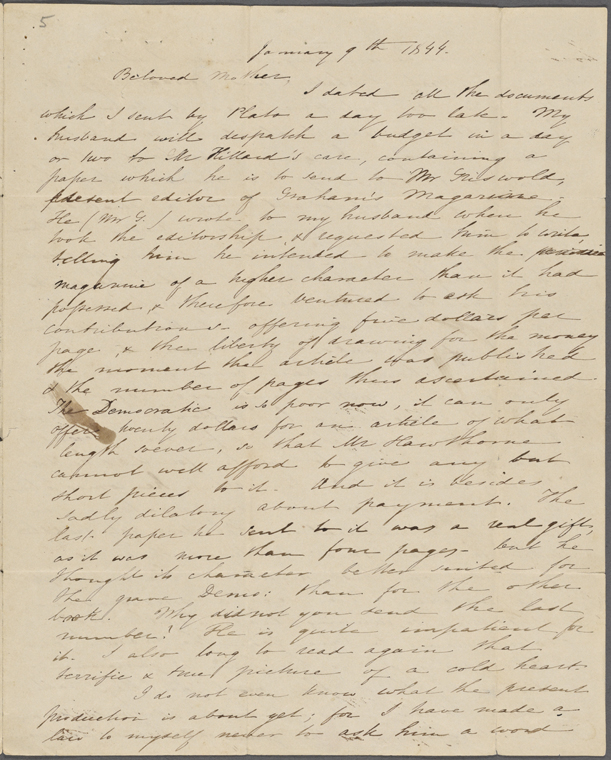 5
January 9th 1844.
Beloved Mother,
I dated all the documents
which I sent by Plato a day too late - My
husband will despatch a budget in a day
or two to Mr Hillard's care, containing a
paper which he is to send to Mr Griswold,
present editor of Graham's Magazine.
He (Mr G.) wrote to my husband when he
took the editorship, & requested him to write
telling him he intended to make the
magazine of a higher character than it had
possessed & therefore ventured to ask his
contributions - offering five dollars per
page, & the liberty of drawing for the money
the moment the article was published
& the number of pages thus ascertained.
The Democratic is so poor now, it can only
offer twenty dollars for an article of what
length soever, so that Mr Hawthorne
cannot well afford to give any but
short pieces to it. And it is besides
sadly dilatory about payment. The
last paper he sent to it was a real gift,
as it was more than four pages - but he
thought its character better suited for
the grave Demo: than for the other
book. Why did not you send the last
number! He is quite impatient for
it. I also long to read again that
terrific & true picture of a cold heart.
I do not even know what the present
production is about yet; for I have made a
law to myself never to ask him a word